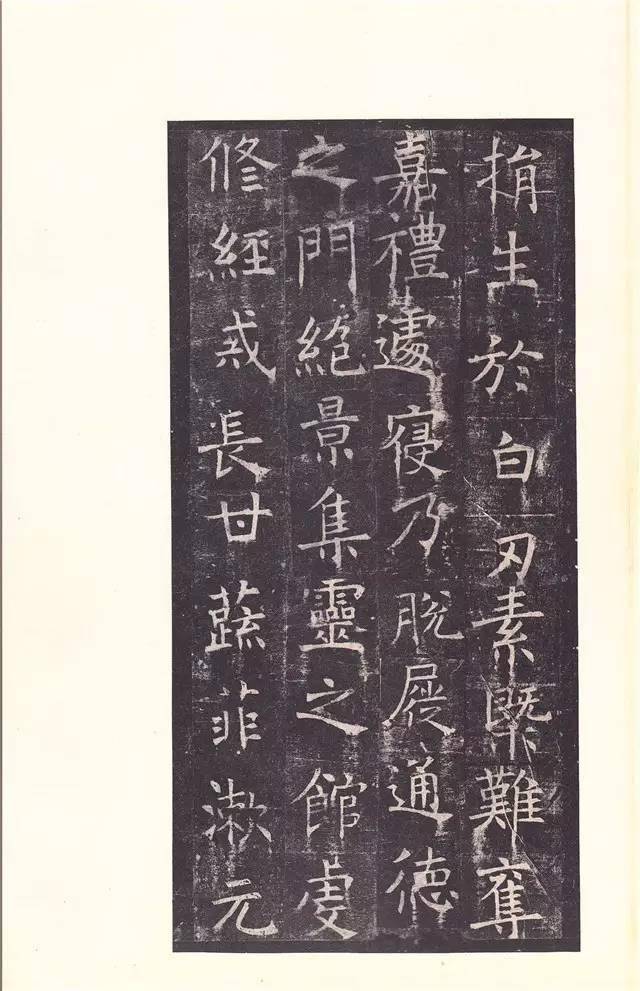 捐生於白刃素槩難奪
嘉禮遽寑乃脫屣通德
之門絶景集靈之館虔
修經戒長甘蔬菲漱元